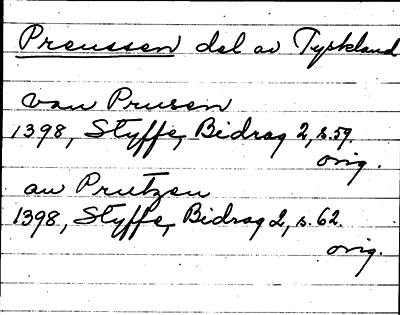 Preussen del av Tyskland
van Prusen
1398, Styffe, Bidrag 2, s. 59.
orig.
au Prutzen
1398, Styffe, Bidrag 2, s. 62.
orig.